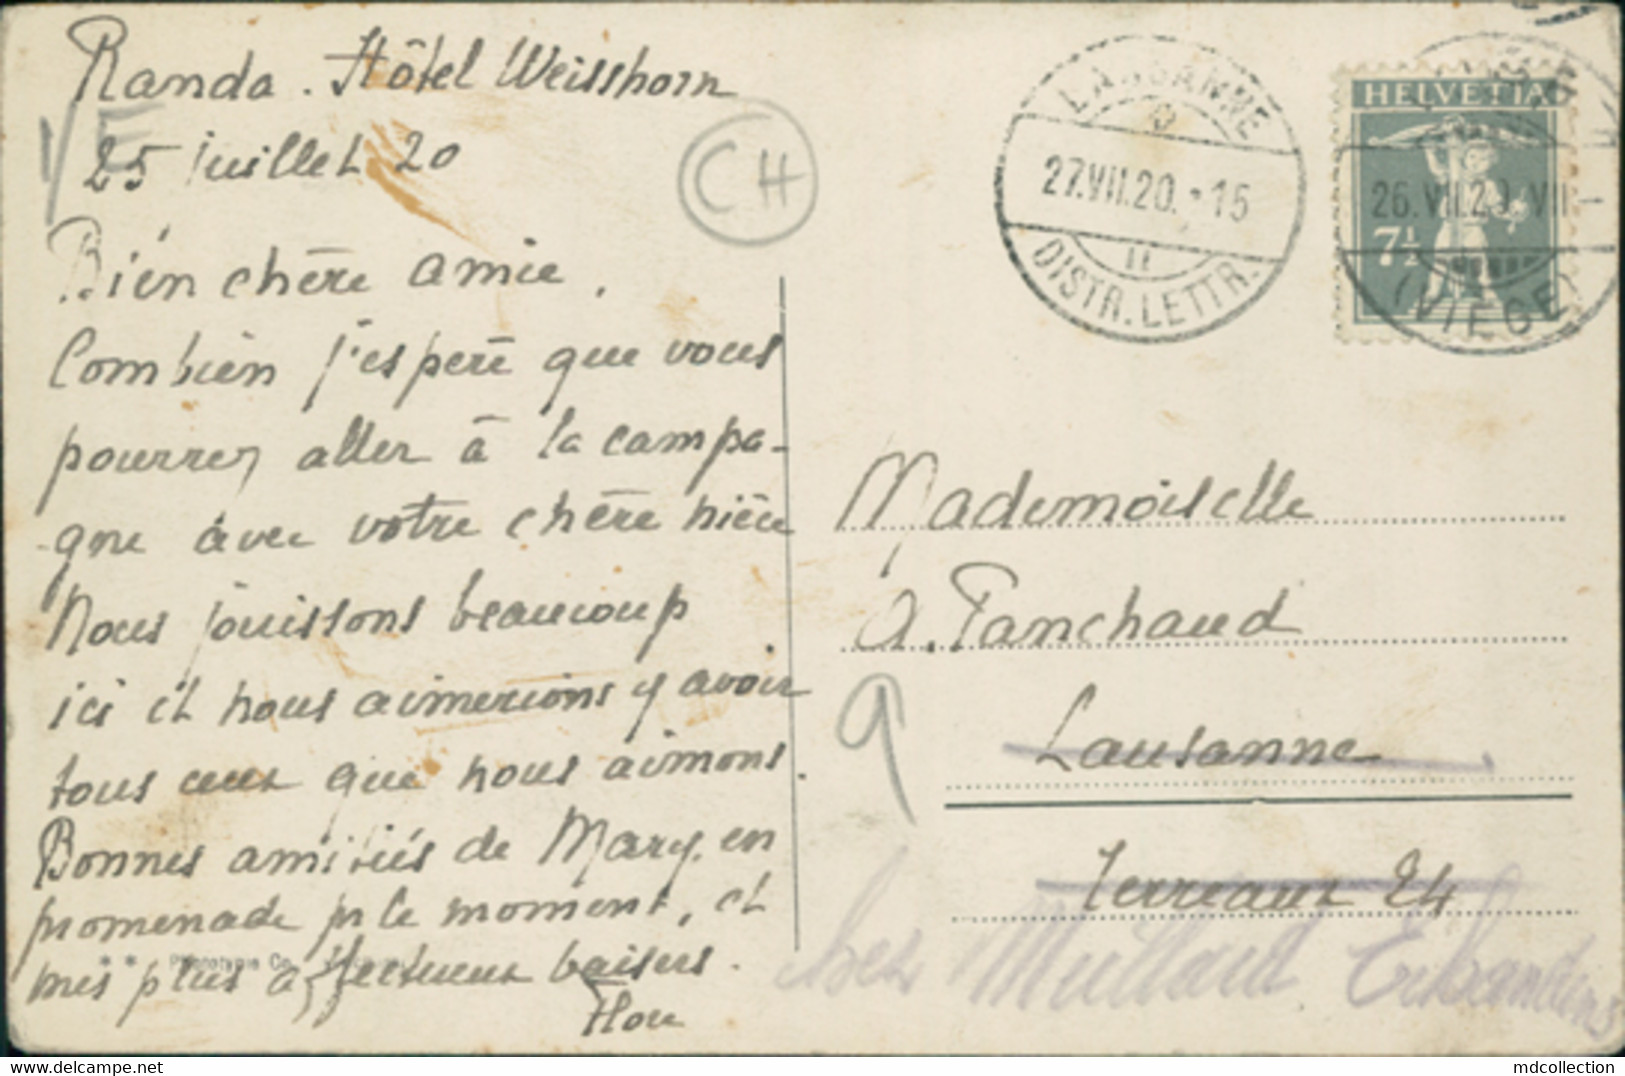 Randa. Hôtel Weisshorn
25 juillet 20
Bien chère amie.
Combien j'espère que vous
pourrez aller à la campa-
gne avec votre chère nièce
Nous jouissons beaucoup
ici et nous aimerions y avoir
tous ceux que nous aimons.
Bonnes amitiés de Mary, en
promenade pr le moment, et
mes plus affectueux baisers.
Flore
VE
CH
LAUSANNE
27.VII.20.-15
DISTR. LETTR.
HELVETIA
7½
26.VII.20. VII-
(VIEGE)
Mademoiselle
A. Panchaud
9
Lausanne
Terreaux 24
chez
** Phototypie Co.
mdcollection